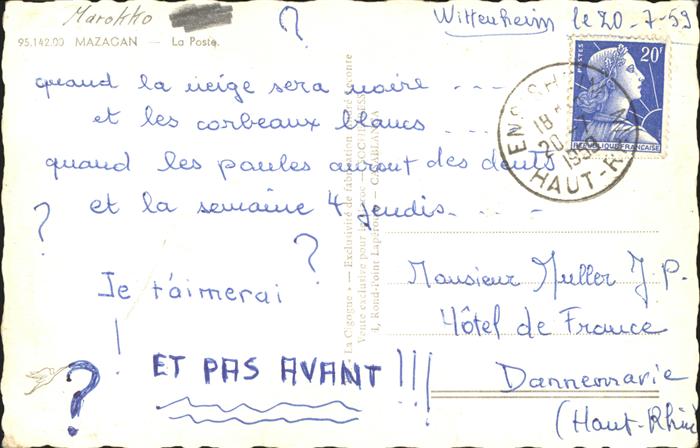 Marokko
95.142.00 MAZAGAN — La Poste.
?
Wittenheim le 20-7-59
POSTES 20F
REPUBLIQUE FRANÇAISE
18
20-7
1959
HAUT-RHIN
quand la neige sera noire ...
et les corbeaux blancs ...
quand les poules auront des dents
et la semaine 4 jeudis ...
?
?
Je t'aimerai
!
ET PAS AVANT !!!
?
« La Cigogne » — Exclusivité de fabrication
Vente exclusive pour le Maroc
1, Rond-Point Lapérouse — CASABLANCA
Monsieur Muller J. P.
Hôtel de France
Dannemarie
(Haut-Rhin